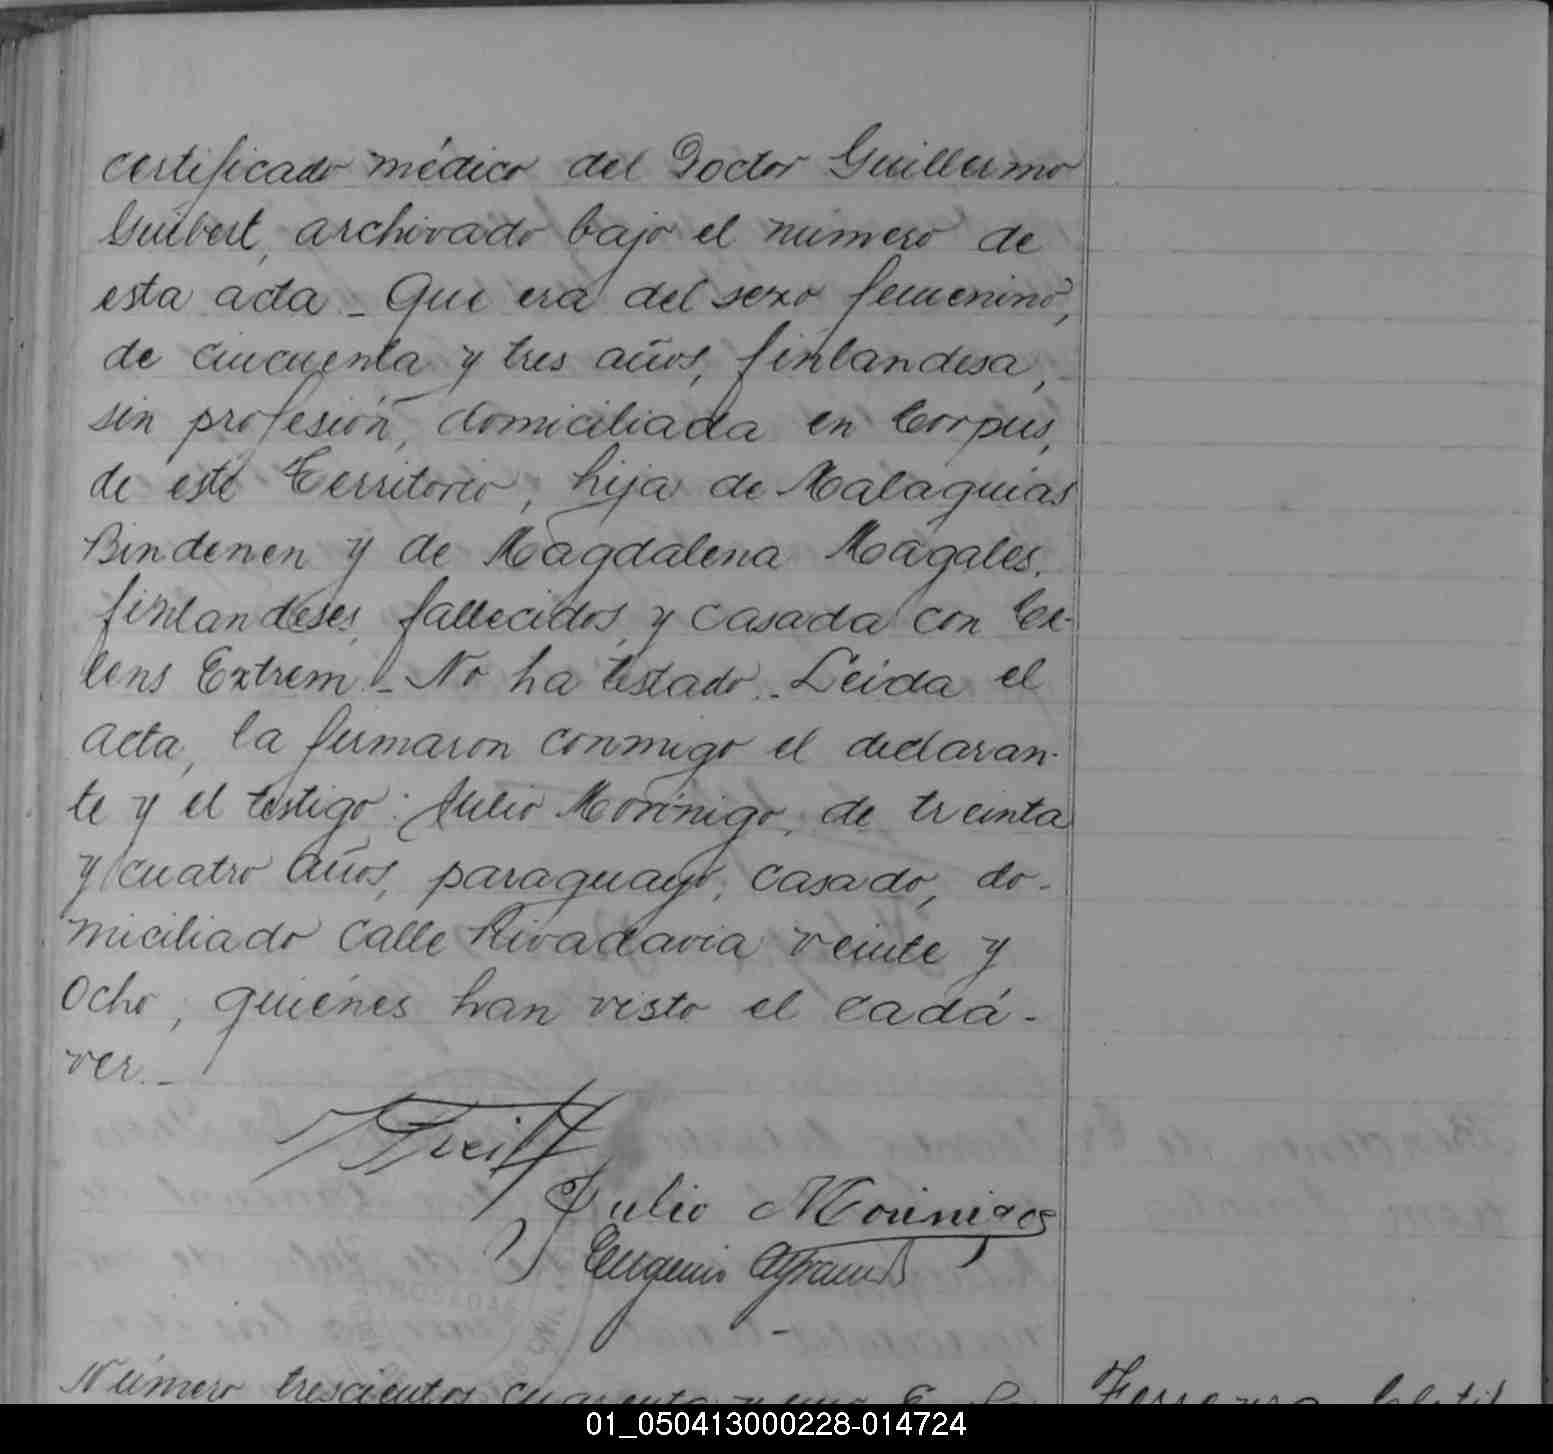 certificado médico del Doctor Guillermo
Guibert, archivado bajo el número de
esta acta - Que era del sexo femenino,
de cincuenta y tres años, finlandesa,
sin profesión, domiciliada en Corpus,
de este Territorio, hija de Malaquías
Bindenen y de Magdalena Magales,
finlandeses, fallecidos, y casada con
lens Extrem - No ha testado - Leida el
acta, la firmaron conmigo el declaran-
te y el testigo: Julio Morínigo, de treinta
y cuatro años, paraguayo, casado, do-
miciliado calle Rivadavia veinte y
ocho, quiénes han visto el cadá-
ver.-
Julio Morinigo
Eugenio
Número trescientos cuarenta y uno. E
01_050413000228-014724